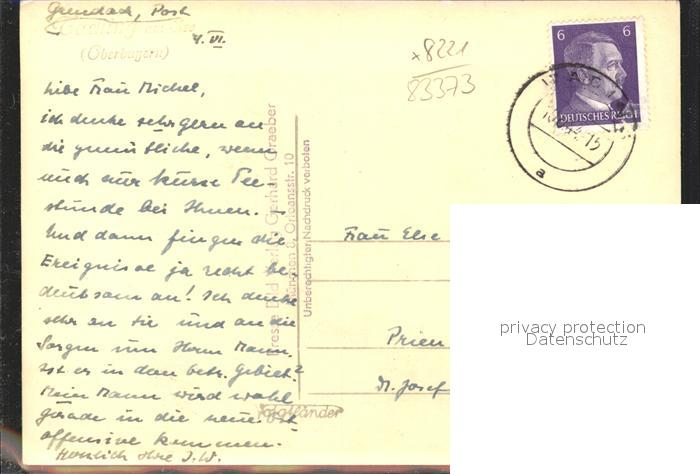 Grundach, Post
(Oberbayern)
4. VI.
x8221
83373
6 6
DEUTSCHES REICH
a
Liebe Frau Michel,
ich denke sehr gern an
die gemütliche, wenn
auch nur kurze Tee-
stunde bei Ihnen.
Und dann fingen die
Ereignisse ja recht be-
deutsam an! Ich denke
sehr an Sie und an die
Sorgen um Ihren Mann.
Ist er in dem betr. Gebiet?
Mein Mann wird wohl
gerade in die neue Ost
offensive kommen.
Herzlich Ihre I. W.
Verlag Gerhard Graeber
München 8, Orleansstr. 10
Unberechtigter Nachdruck verboten
Voigtländer
Frau Else
Prien
Dr. Josef
privacy protection
Datenschutz